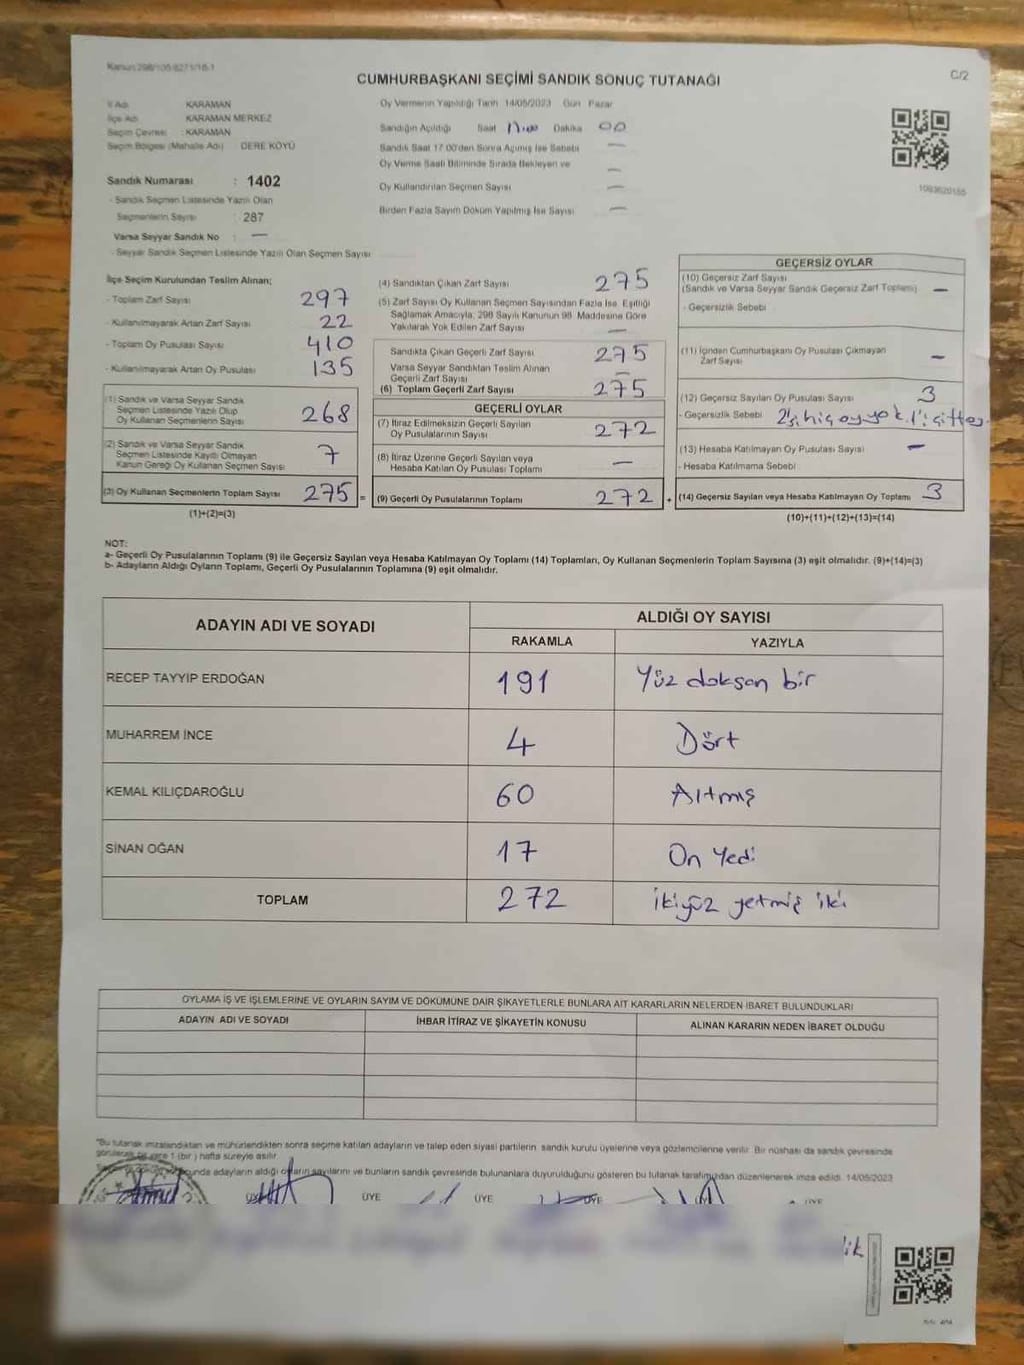 Kanun 298/105-6271/16-1
C/2
CUMHURBAŞKANI SEÇİMİ SANDIK SONUÇ TUTANAĞI
İl Adı KARAMAN
İlçe Adı KARAMAN MERKEZ
Seçim Çevresi : KARAMAN
Seçim Bölgesi (Mahalle Adı) DERE KÖYÜ
Sandık Numarası : 1402
- Sandık Seçmen Listesinde Yazılı Olan
Seçmenlerin Sayısı : 287
Varsa Seyyar Sandık No : —
- Seyyar Sandık Seçmen Listesinde Yazılı Olan Seçmen Sayısı
Oy Vermenin Yapıldığı Tarih 14/05/2023 Gün Pazar
Sandığın Açıldığı Saat Dakika 00
Sandık Saat 17:00'den Sonra Açılmış İse Sebebi —
Oy Verme Saati Bitiminde Sırada Bekleyen ve —
Oy Kullandırılan Seçmen Sayısı —
Birden Fazla Sayım Döküm Yapılmış İse Sayısı —
1093620155
İlçe Seçim Kurulundan Teslim Alınan;
- Toplam Zarf Sayısı 297
- Kullanılmayarak Artan Zarf Sayısı 22
- Toplam Oy Pusulası Sayısı 410
- Kullanılmayarak Artan Oy Pusulası 135
(1) Sandık ve Varsa Seyyar Sandık
Seçmen Listesinde Yazılı Olup
Oy Kullanan Seçmenlerin Sayısı 268
(2) Sandık ve Varsa Seyyar Sandık
Seçmen Listesinde Kayıtlı Olmayan
Kanun Gereği Oy Kullanan Seçmen Sayısı 7
(3) Oy Kullanan Seçmenlerin Toplam Sayısı 275 =
(1)+(2)=(3)
(4) Sandıktan Çıkan Zarf Sayısı 275
(5) Zarf Sayısı Oy Kullanan Seçmen Sayısından Fazla İse, Eşitliği
Sağlamak Amacıyla, 298 Sayılı Kanunun 98. Maddesine Göre
Yakılarak Yok Edilen Zarf Sayısı —
Sandıkta Çıkan Geçerli Zarf Sayısı 275
Varsa Seyyar Sandıktan Teslim Alınan
Geçerli Zarf Sayısı —
(6) Toplam Geçerli Zarf Sayısı 275
GEÇERLİ OYLAR
(7) İtiraz Edilmeksizin Geçerli Sayılan
Oy Pusulalarının Sayısı 272
(8) İtiraz Üzerine Geçerli Sayılan veya
Hesaba Katılan Oy Pusulası Toplamı —
(9) Geçerli Oy Pusulalarının Toplamı 272 +
GEÇERSİZ OYLAR
(10) Geçersiz Zarf Sayısı
(Sandık ve Varsa Seyyar Sandık Geçersiz Zarf Toplamı) —
- Geçersizlik Sebebi
(11) İçinden Cumhurbaşkanı Oy Pusulası Çıkmayan
Zarf Sayısı —
(12) Geçersiz Sayılan Oy Pusulası Sayısı 3
- Geçersizlik Sebebi 2'si hiç oy yok. 1'i çiftes.
(13) Hesaba Katılmayan Oy Pusulası Sayısı —
- Hesaba Katılmama Sebebi
(14) Geçersiz Sayılan veya Hesaba Katılmayan Oy Toplamı 3
(10)+(11)+(12)+(13)=(14)
NOT:
a- Geçerli Oy Pusulalarının Toplamı (9) ile Geçersiz Sayılan veya Hesaba Katılmayan Oy Toplamı (14) Toplamları, Oy Kullanan Seçmenlerin Toplam Sayısına (3) eşit olmalıdır. (9)+(14)=(3)
b- Adayların Aldığı Oyların Toplamı, Geçerli Oy Pusulalarının Toplamına (9) eşit olmalıdır.
ADAYIN ADI VE SOYADI ALDIĞI OY SAYISI
RAKAMLA YAZIYLA
RECEP TAYYİP ERDOĞAN 191 Yüz doksan bir
MUHARREM İNCE 4 Dört
KEMAL KILIÇDAROĞLU 60 Altmış
SİNAN OĞAN 17 On Yedi
TOPLAM 272 ikiyüz yetmiş iki
OYLAMA İŞ VE İŞLEMLERİNE VE OYLARIN SAYIM VE DÖKÜMÜNE DAİR ŞİKAYETLERLE BUNLARA AİT KARARLARIN NELERDEN İBARET BULUNDUKLARI
ADAYIN ADI VE SOYADI İHBAR İTİRAZ VE ŞİKAYETİN KONUSU ALINAN KARARIN NEDEN İBARET OLDUĞU
"Bu tutanak imzalandıktan ve mühürlendikten sonra seçime katılan adayların ve talep eden siyasi partilerin sandık kurulu üyelerine veya gözlemcilerine verilir. Bir nüshası da sandık çevresinde
1 (bir) hafta süreyle asılır.
adayların aldığı oyların sayılarını ve bunların sandık çevresinde bulunanlara duyurulduğunu gösteren bu tutanak tarafımızdan düzenlenerek imza edildi. 14/05/2023
ÜYE ÜYE ÜYE ÜYE